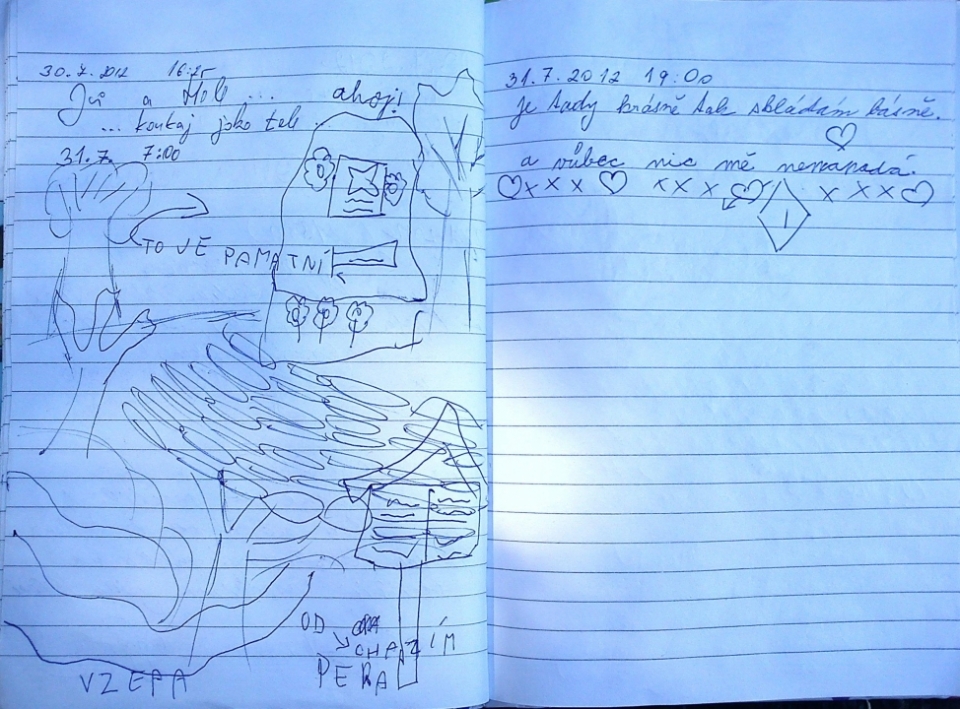 30.7.2012 16:25
Já a ... ahoj!
... koukaj jako tele
31.7. 7:00
TO VE PAMATNÍ
OD
CHAZÍM
PERA
VZEPA
31.7.2012 19:00
je tady krásně tak skládám básně.
a vůbec nic mě nenapadá.